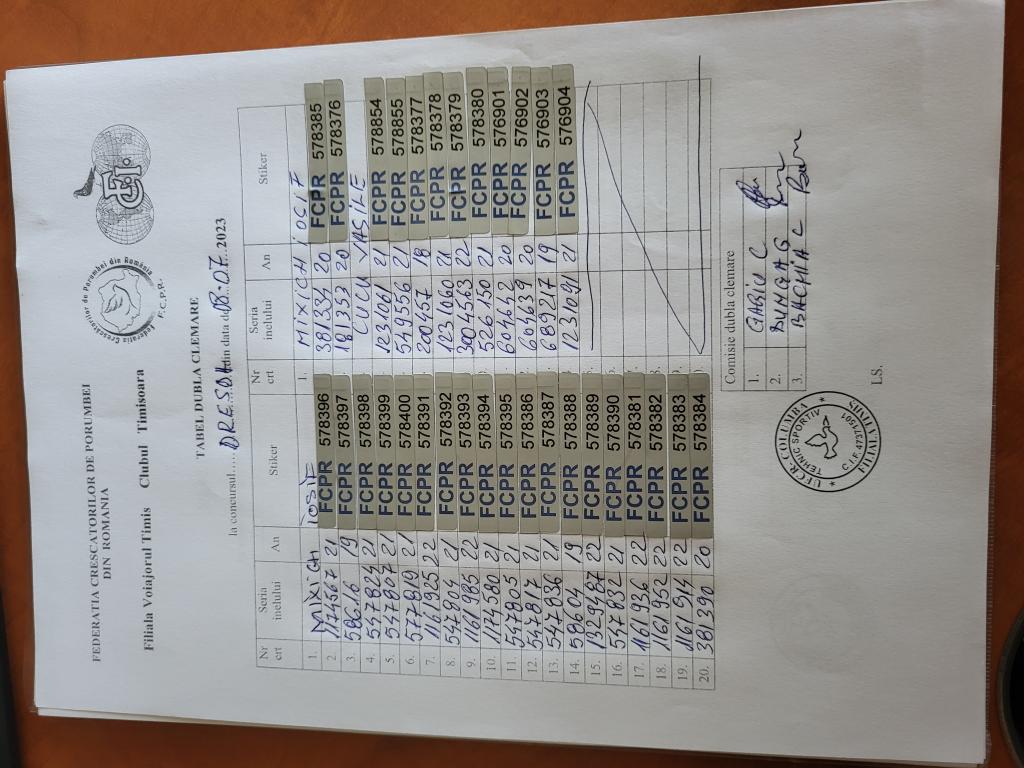 FEDERATIA CRESCATORILOR DE PORUMBEI
DIN ROMANIA
Filiala Voiajorul Timis Clubul Timisoara
Federatia Crescatorilor de Porumbei din România
F.C.P.R.
TABEL DUBLA CLEMARE
la concursul..... DRESDA din data de 08-07...2023
Nr crt Seria inelului An Stiker
1. MIXICH IOSIF
2. 1174567 21 FCPR 578396
3. 586.16 19 FCPR 578397
4. 547824 21 FCPR 578398
5. 547807 21 FCPR 578399
6. 577819 21 FCPR 578400
7. 1161925 22 FCPR 578391
8. 547804 21 FCPR 578392
9. 1161985 22 FCPR 578393
10. 1174580 21 FCPR 578394
11. 547805 21 FCPR 578395
12. 547817 21 FCPR 578386
13. 547836 21 FCPR 578387
14. 58604 19 FCPR 578388
15. 1329487 22 FCPR 578389
16. 547832 21 FCPR 578390
17. 1161936 22 FCPR 578381
18. 1161952 22 FCPR 578382
19. 1161914 22 FCPR 578383
20. 381390 20 FCPR 578384
Nr crt Seria inelului An Stiker
1. MIXICH IOSIF
381334 20 FCPR 578385
181353 20 FCPR 578376
CUCU VASILE
1231061 21 FCPR 578854
549556 21 FCPR 578855
200457 18 FCPR 578377
1231060 21 FCPR 578378
3004563 22 FCPR 578379
526150 21 FCPR 578380
604642 20 FCPR 576901
603639 20 FCPR 576902
689217 19 FCPR 576903
1231091 21 FCPR 576904
Comisie dubla clemare
1. GARIU C
2. DUNGA G
3. BACHIA C
UFCR: COLUMBA
TEHNIC SPORTIV
C.I.F. 42471501
FILIALA TIMIS
LS.